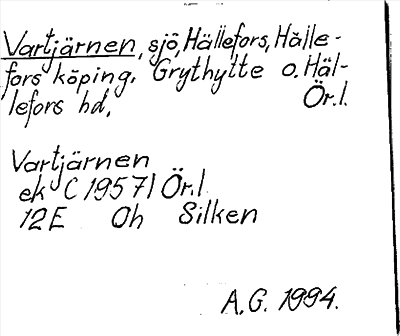 Vartjärnen, sjö, Hällefors, Hälle-
fors köping, Grythytte o. Häl-
lefors hd, Ör.l.
Vartjärnen
ek C 19571 Ör.l
12E Oh Silken
A.G. 1994.